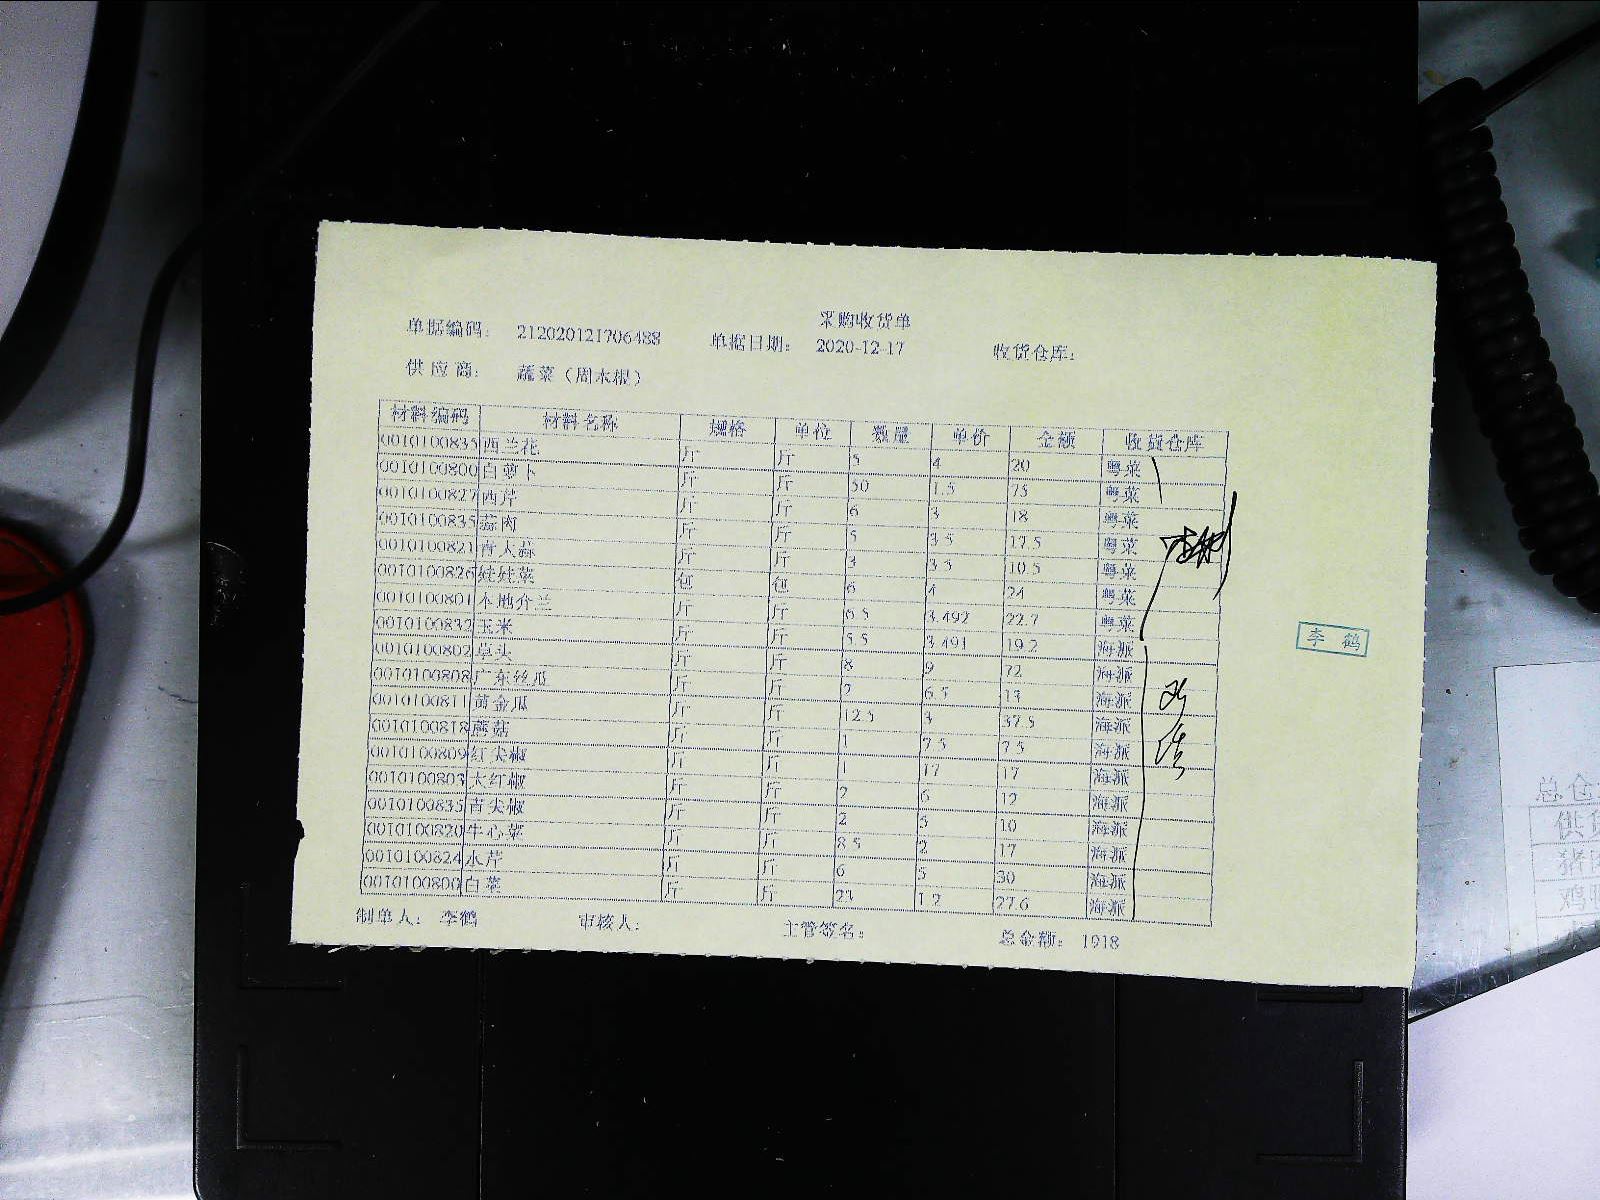 采购收货单
单据编码： 212020121706488 单据日期： 2020-12-17 收货仓库：
供应商： 蔬菜（周木根）
材料编码 材料名称 规格 单位 数量 单价 金额 收货仓库
0010100835 西兰花 斤 斤 5 4 20 粤菜
0010100800 白萝卜 斤 斤 50 1.5 75 粤菜
0010100827 西芹 斤 斤 6 3 18 粤菜
0010100835 蒜肉 斤 斤 5 3.5 17.5 粤菜
0010100821 青大蒜 斤 斤 3 3.5 10.5 粤菜
0010100826 娃娃菜 包 包 6 4 24 粤菜
0010100801 本地介兰 斤 斤 6.5 3.492 22.7 粤菜
0010100832 玉米 斤 斤 5.5 3.491 19.2 海派
0010100802 草头 斤 斤 8 9 72 海派
0010100808 广东丝瓜 斤 斤 2 6.5 13 海派
0010100811 黄金瓜 斤 斤 12.5 3 37.5 海派
0010100818 蘑菇 斤 斤 1 7.5 7.5 海派
0010100809 红尖椒 斤 斤 1 17 17 海派
0010100803 大红椒 斤 斤 2 6 12 海派
0010100835 青尖椒 斤 斤 2 5 10 海派
0010100820 牛心菜 斤 斤 8.5 2 17 海派
0010100824 水芹 斤 斤 6 5 30 海派
0010100800 白菜 斤 斤 23 1.2 27.6 海派
李鹤
制单人： 李鹤 审核人： 主管签名： 总金额： 1918
总仓
供货
猪肉
鸡鸭